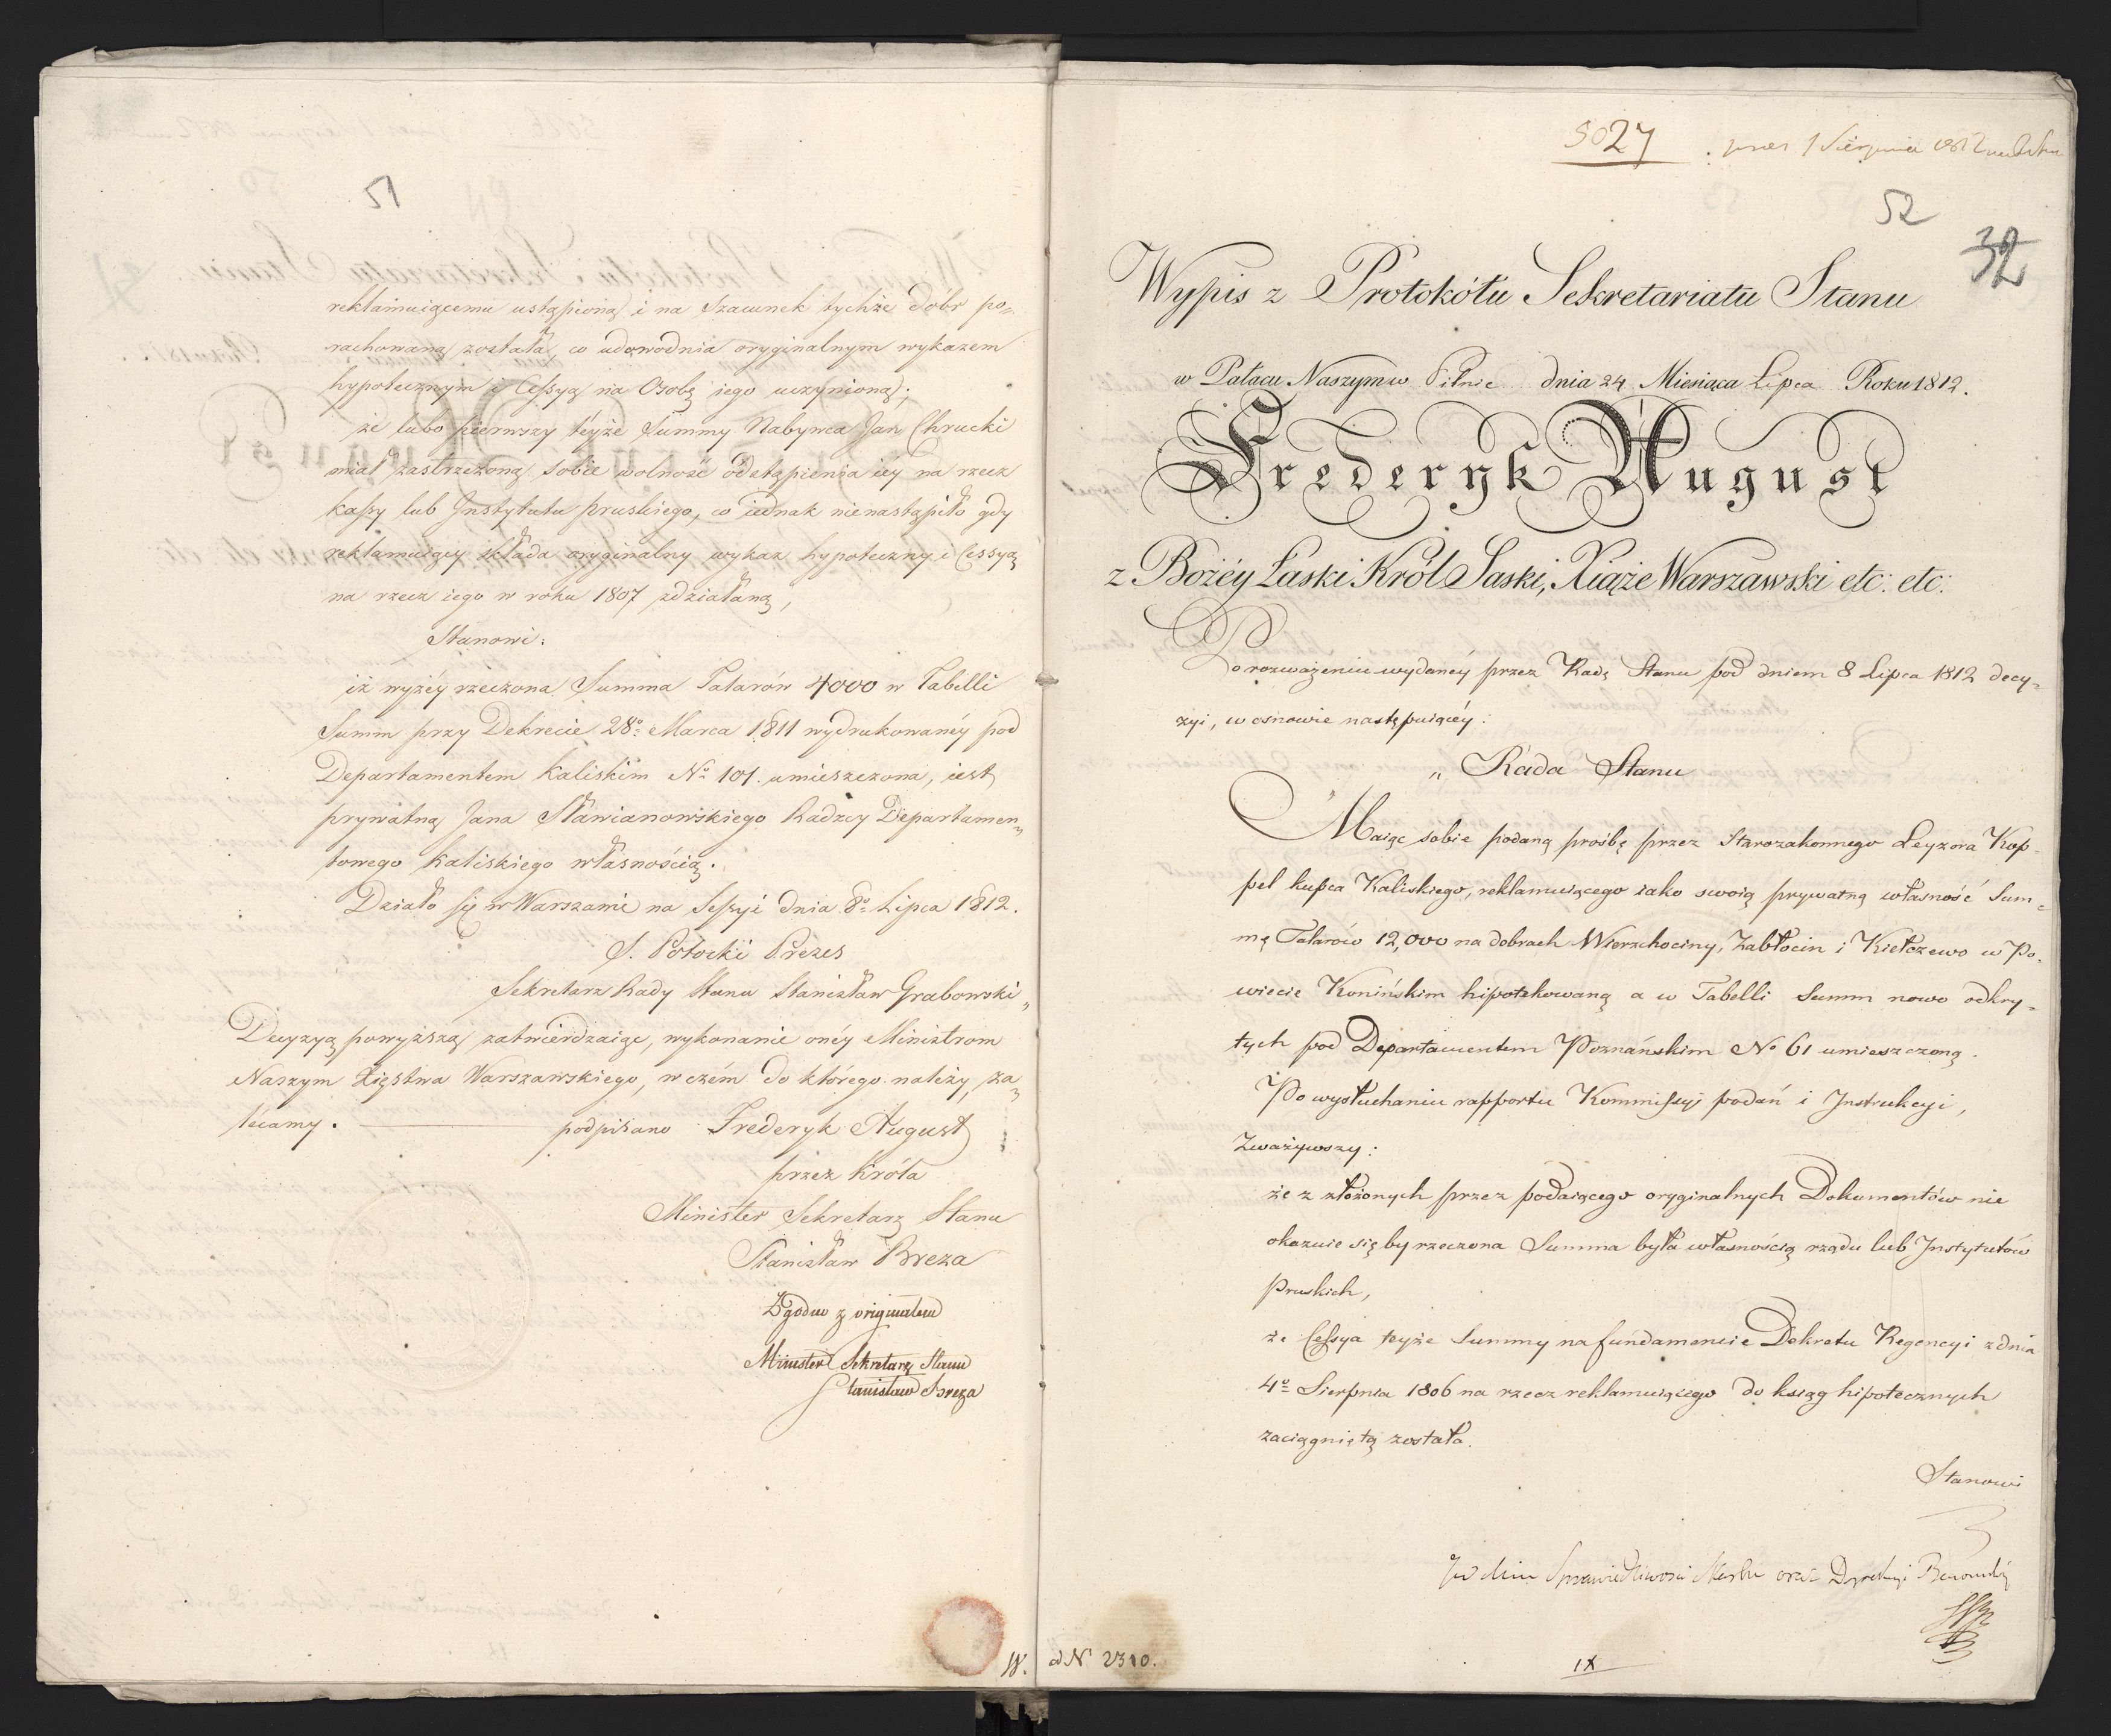 51
reklamuiącemu ustąpioną i na Szacunek tychże Dóbr po=
rachowaną została, co udowodnia oryginalnym wykazem
hypotecznym i Cessyą na Osobę iego uczynioną;
że lubo pierwszy téyże Summy Nabywca Jan Chrucki
miał zastrzeżoną sobie wolność odstąpienia iéy na rzecz
kassy lub Instytutu pruskiego, co iednak nienastąpiło gdy
reklamuiący składa oryginalny wykaz hypoteczny i Cessyą
na rzecz iego w roku 1807 zdziałaną,
Stanowi:
iż wyżéy rzeczona Summa Talarów 4000 w Tabelli
Summ przy Dekrecie 28º Marca 1811 wydrukowanéy pod
Departamentem Kaliskim Nº 101. umieszczona, iest
prywatną Jana Stawianowskiego Radzcy Departamen=
towego Kaliskiego własnością.
Działo się w Warszawie na Sessyi dnia 8º Lipca 1812.
S. Potocki Prezes
Sekretarz Rady Stanu Stanisław Grabowski"
Decyzyą powyższą zatwierdzaiąc, wykonanie onéy Ministrom
Naszym Xięstwa Warszawskiego, w czém do którego należy, za=
lecamy. podpisano Frederyk August
przez Króla
Minister Sekretarz Stanu
Stanisław Breza
Zgodno z originałem
Minister Sekretarz Stanu
Stanisław Breza
W.
5027 praes 1 Sierpnia 1812
52
32
Wypis z Protokółu Sekretariatu Stanu
w Pałacu Naszym w Pilnic dnia 24 Miesiąca Lipca Roku 1812.
Frederyk August
z Bożéy Łaski Król Saski, Xiąże Warszawski etc: etc:
Po rozważeniu wydanéy przez Radę Stanu pod dniem 8 Lipca 1812 decy=
zyi, w osnowie następuiącéy:
" Rada Stanu
Maiąc sobie podaną prośbę przez Starozakonnego Leyzora Kop=
pel kupca Kaliskiego, reklamuiącego iako swoią prywatną własność Sum=
mę Talarów 12,000 na dobrach Wierzchociny, Zabłocin i Kiełczewo w Po=
wiecie Konińskim hipotekowaną a w Tabelli Summ nowo odkry=
tych pod Departamentem Poznańskim Nº 61 umieszczoną.
Po wysłuchaniu rapportu Kommissyi podań i Instrukcyi,
Zważywszy:
że z złożonych przez podaiącego oryginalnych Dokumentów nie
okazuie się by rzeczona Summa była własnością rządu lub Instytutów
Pruskich,
że Cessya teyże Summy na fundamencie Dekretu Regencyi z dnia
4º Sierpnia 1806 na rzecz reklamuiącego do ksiąg hipotecznych
zaciągniętą została.
Stanowi
Sprawiedliwości Skarbu oraz Dyrekcyi
ad Nº 2310.
IX